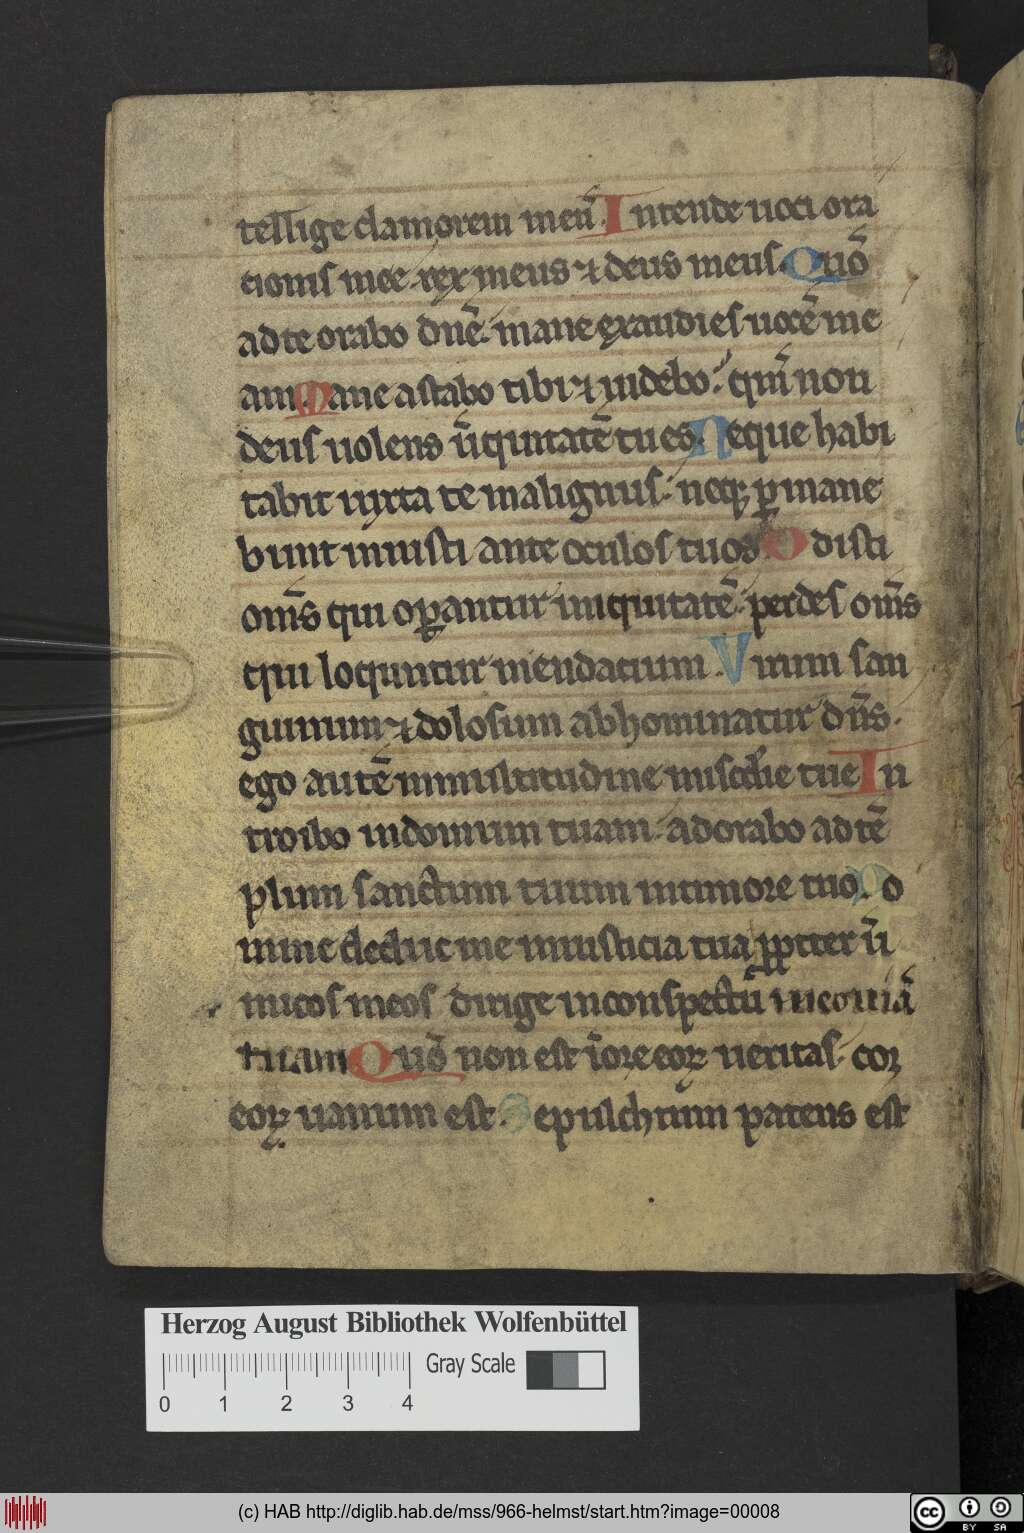 tellige clamorem meū. Intende uoci ora
tionis mee. rex meus ⁊ deus meus. Quō
ad te orabo dn̄e. mane exaudies uocē me
am. Mane astabo tibi ⁊ uidebo. qm̄ non
deus uolens īiquitatē tu es. Neque habi
tabit iuxta te malignus. neqꝫ ꝑmane
bunt iniusti ante oculos tuos. Odisti
om̄s qui oꝑantur iniquitatē. perdes om̄s
qui locuntur mendacium. Virum san
guinum ⁊ dolosum abhominatur dn̄s.
ego autē in multitudine miscd̄ie tue In
troibo in domum tuam. adorabo ad tē
plum sanctum tuum in timore tuo. Do
mine deduc me in iusticia tua ꝓpter ī
micos meos dirige in conspectū meo uiā
tuam Quō non est ī ore eoꝝ ueritas. cor
eoꝝ uanum est. Sepulchrum patens est
Herzog August Bibliothek Wolfenbüttel
Gray Scale
0 1 2 3 4
(c) HAB http://diglib.hab.de/mss/966-helmst/start.htm?image=00008
cc BY SA